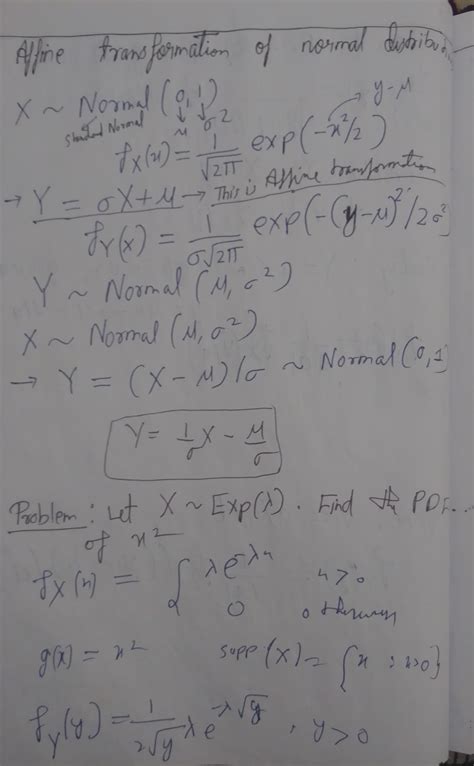 Affine transformation of normal distribu
X ~ Normal (0, 1)
Standard Normal μ σ2
y-μ
f_X(x) = 1/√2π exp(-x²/2)
→ Y = σX+μ → This is Affine transformation
f_Y(x) = 1/σ√2π exp(-(y-μ)²/2σ²
Y ~ Normal (μ, σ²)
X ~ Normal (μ, σ²)
→ Y = (X-μ)/σ ~ Normal (0,1)
Y = 1/σ X - μ/σ
Problem: Let X ~ Exp(λ). Find the PDF..
of x²
f_X(x) = { λe^-λx x>0
0 otherwise
g(x) = x² supp(X) = {x : x>0}
f_Y(y) = 1/2√y λe^-λ√y, y>0